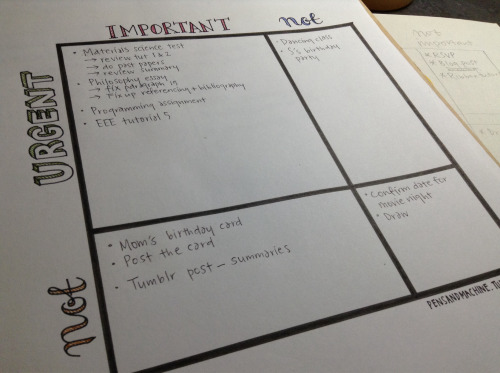 IMPORTANT
not
URGENT
• Materials science test
→ review tut 1 & 2
→ do past papers
→ review summary
• Philosophy essay
→ fix paragraph 19
→ fix up referencing + bibliography
• Programming assignment
• EEE tutorial 5
• Dancing class
• S's birthday
party
not
• Mom's birthday card
• Post the card
• Tumblr post – summaries
• Confirm date for
movie night
• Draw
PENSANDMACHINE.TU
not
RSVP